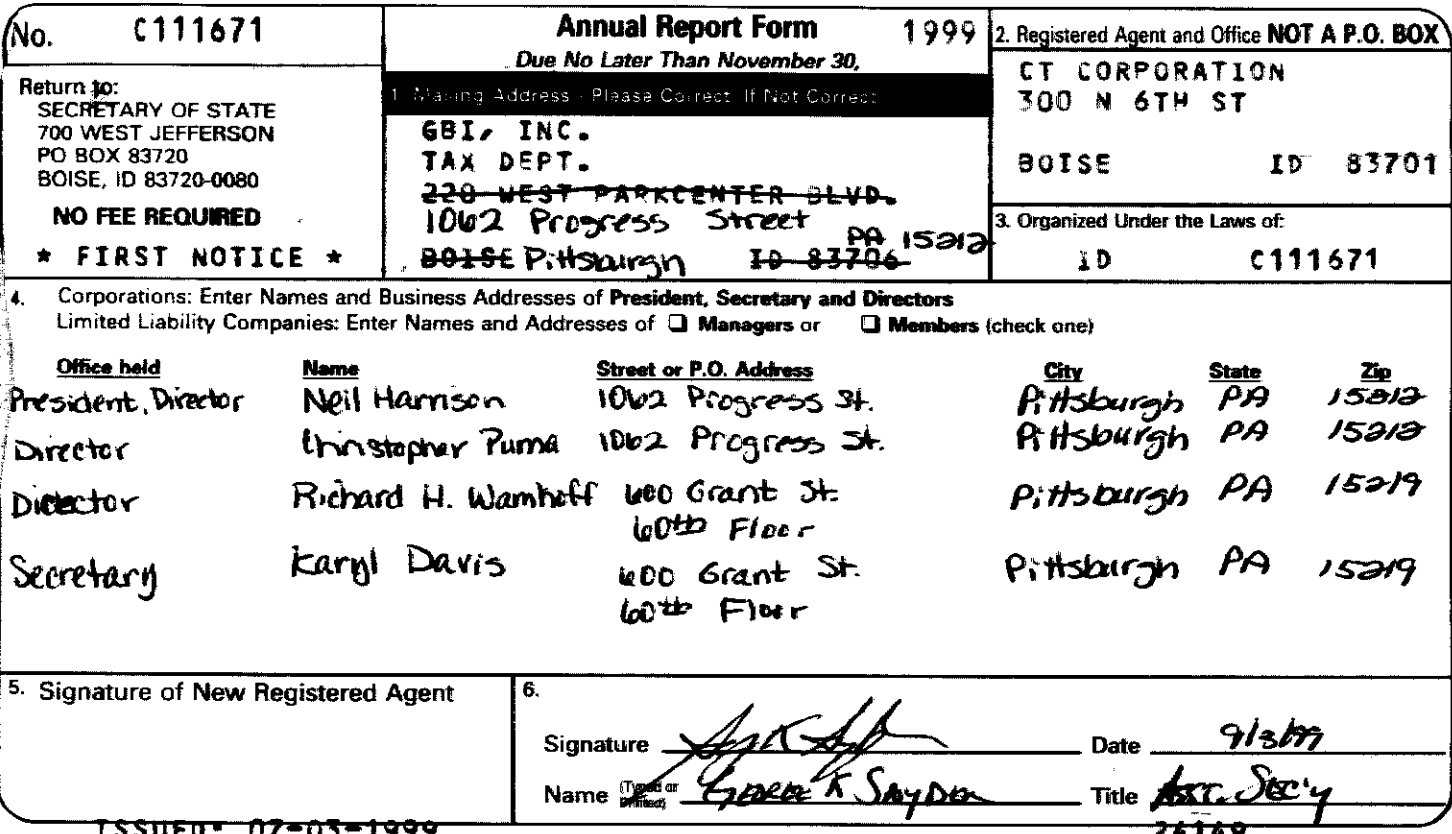 No. C111671
Annual Report Form 1999
Due No Later Than November 30,
Return to:
SECRETARY OF STATE
700 WEST JEFFERSON
PO BOX 83720
BOISE, ID 83720-0080
NO FEE REQUIRED
* FIRST NOTICE *
1. Mailing Address - Please Correct If Not Correct
GBI, INC.
TAX DEPT.
220 WEST PARKCENTER BLVD.
1062 Progress Street
PA 15212
BOISE Pittsburgh ID 83706
2. Registered Agent and Office NOT A P.O. BOX
CT CORPORATION
300 N 6TH ST
BOISE ID 83701
3. Organized Under the Laws of:
ID C111671
4. Corporations: Enter Names and Business Addresses of President, Secretary and Directors
Limited Liability Companies: Enter Names and Addresses of Managers or Members (check one)
Office held Name Street or P.O. Address City State Zip
President, Director Neil Harrison 1062 Progress St. Pittsburgh PA 15212
Director Christopher Puma 1062 Progress St. Pittsburgh PA 15212
Director Richard H. Wamhoff 600 Grant St. Pittsburgh PA 15219
60th Floor
Secretary Karyl Davis 600 Grant St. Pittsburgh PA 15219
60th Floor
5. Signature of New Registered Agent
6.
Signature Date 9/3/99
Name (Typed or Printed) George K Snyder Title Asst. Sec'y
ISSUED: 07-03-1999
26169